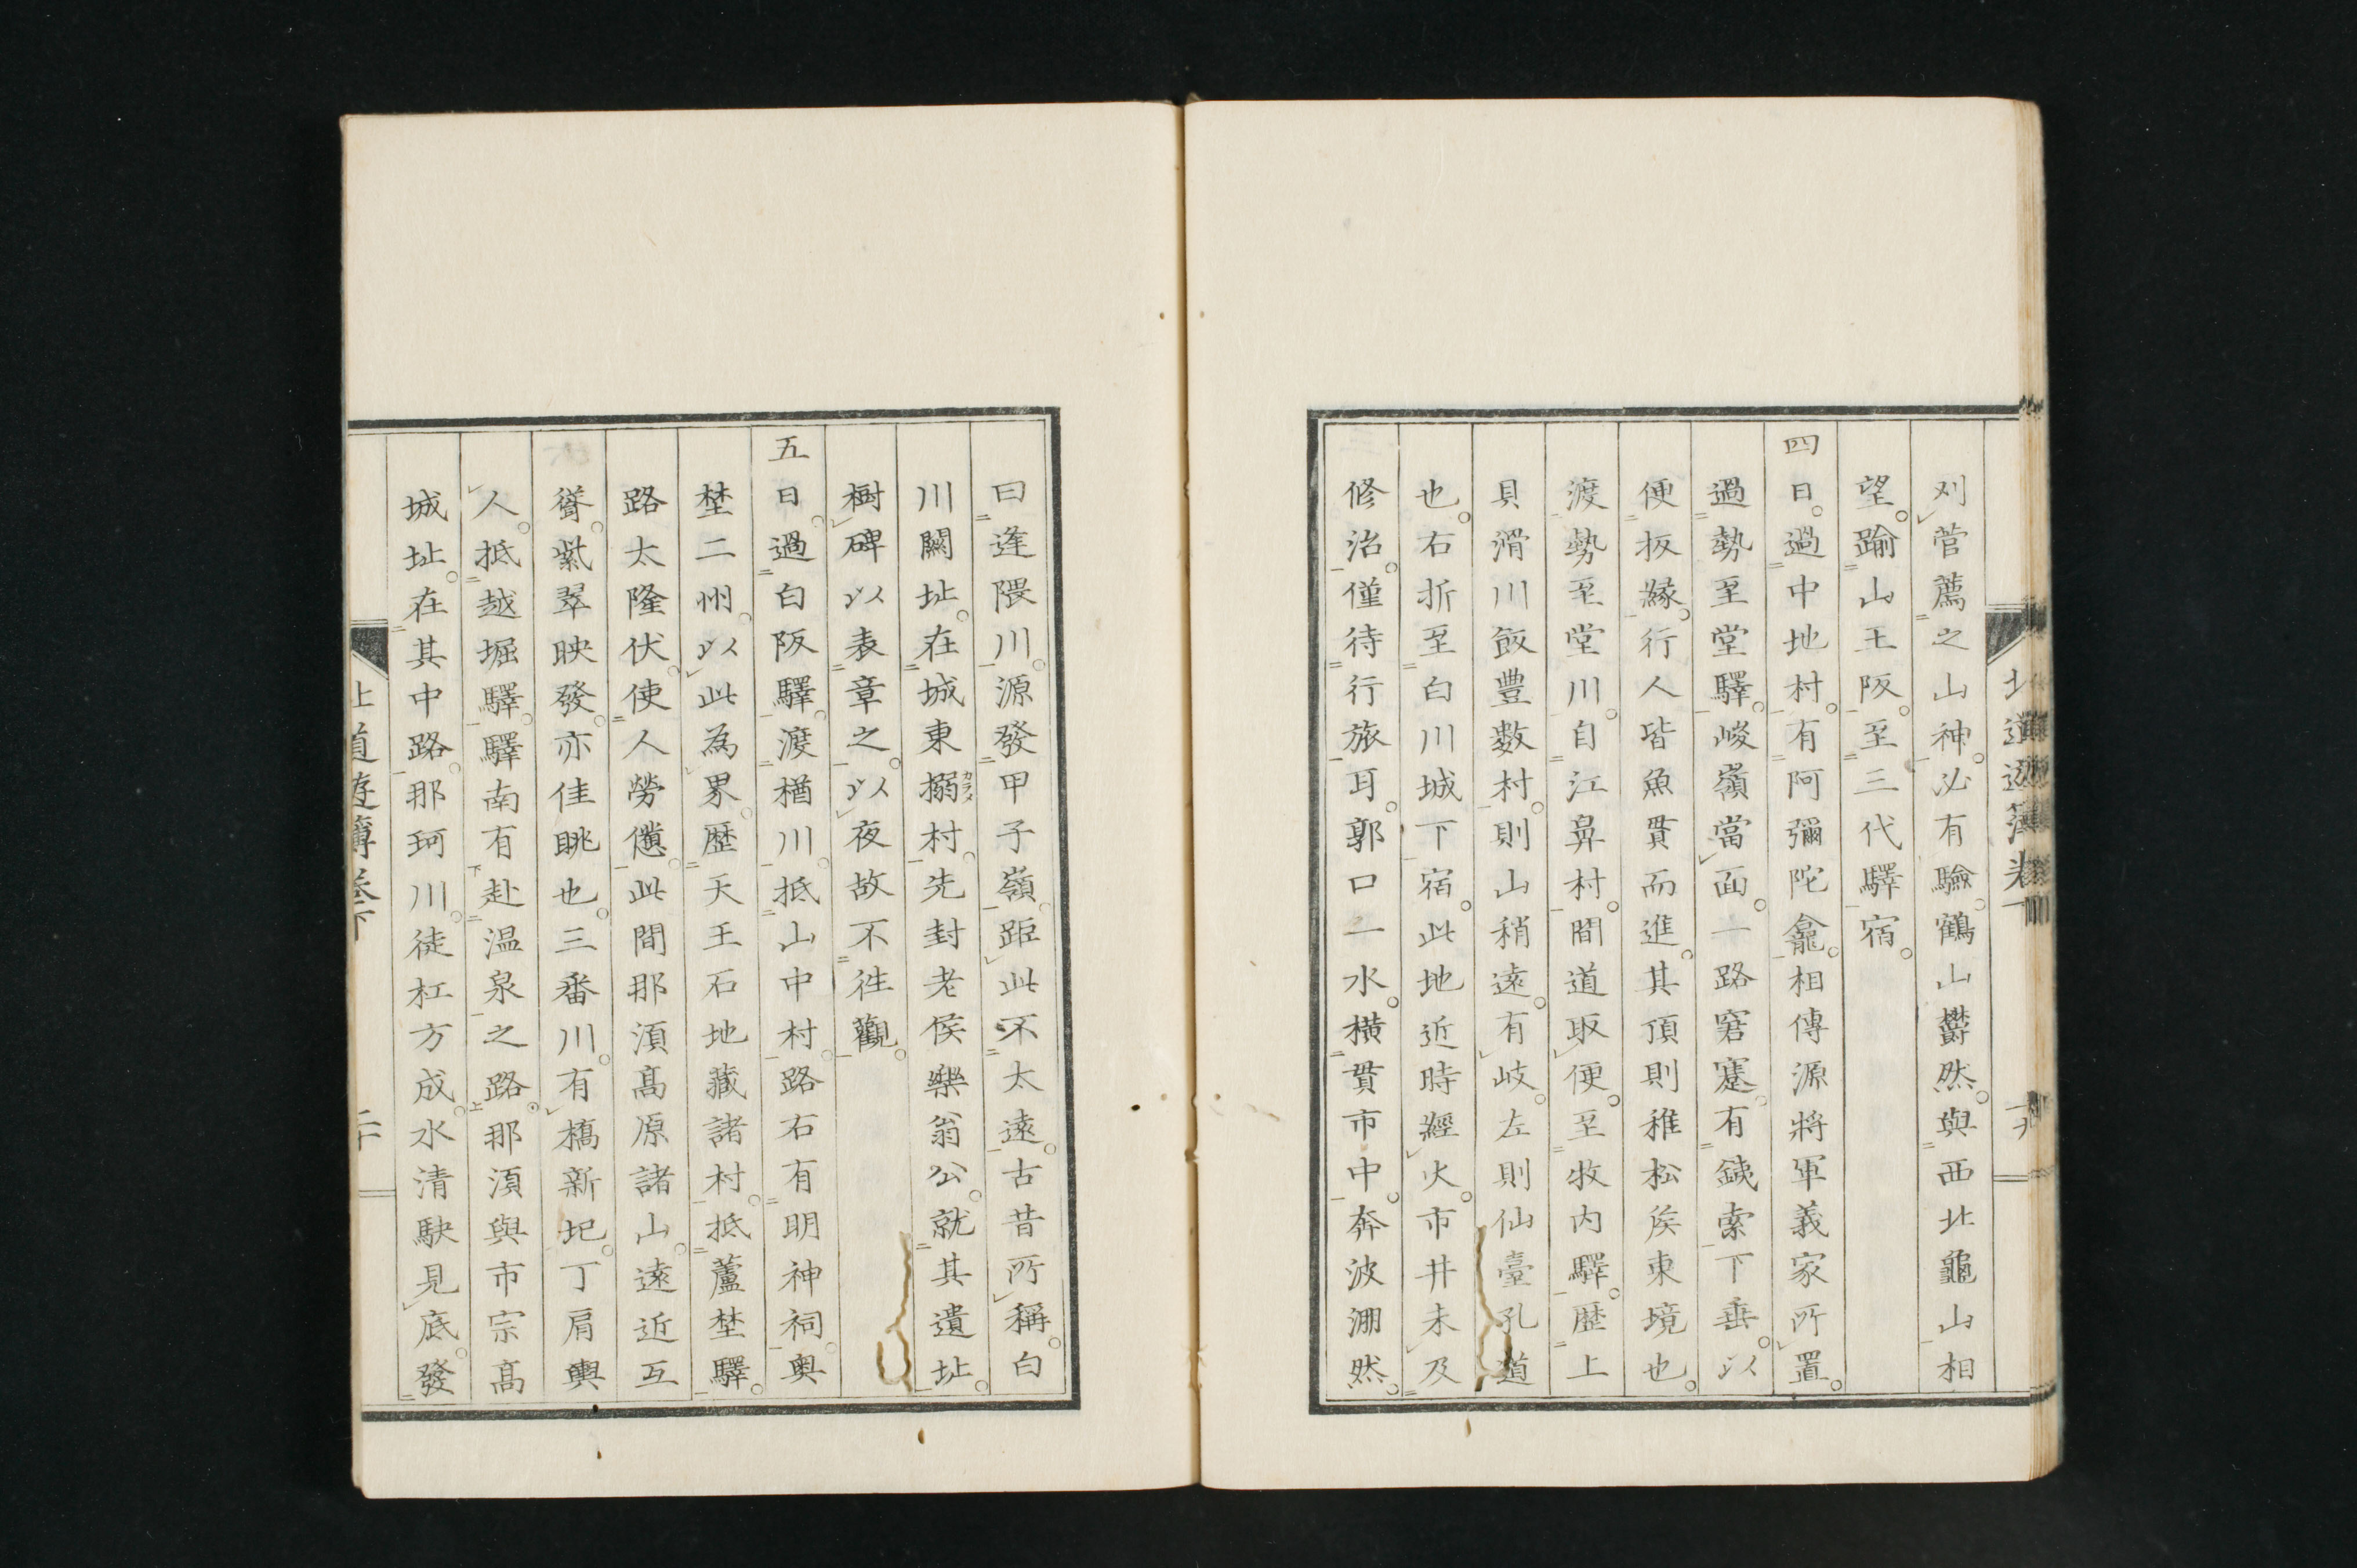 刈菅薦之山神。必有驗。鶴山欝然。與西北龜山相
望。踰山王阪。至三代驛宿。
四日。過中地村。有阿彌陀龕。相傳源將軍義家所置。
過勢至堂驛。峻嶺當面。一路窘蹇。有鐵索下垂。以
便扳縁。行人皆魚貫而進。其頂則稚松矦東境也。
渡勢至堂川。自江鼻村。間道取便。至牧内驛。歴上
貝滑川飯豊數村。則山稍遠。有岐。左則仙臺孔道
也。右折至白川城下宿。此地近時經火。市井未及
修治。僅待行旅耳。郭口一水。横貫市中。奔波淜然。
曰逢隈川。源發甲子嶺。距此不太遠。古昔所稱。白
川關址。在城東搦村。先封老侯樂翁公。就其遺址。
樹碑以表章之。以夜故不徃觀。
五日。過白阪驛。渡楢川。抵山中村。路右有明神祠。奥
埜二州。以此為界。歴天王石地藏諸村。抵蘆埜驛。
路太隆伏。使人勞憊。此間那湏髙原諸山。遠近互
聳。紫翠映發。亦佳眺也。三番川。有橋新圮。丁肩輿
人。抵越堀驛。驛南有赴温泉之路。那湏與市宗髙
城址。在其中路。那珂川。徒杠方成。水清駃見底。發
北道遊簿卷下
二十